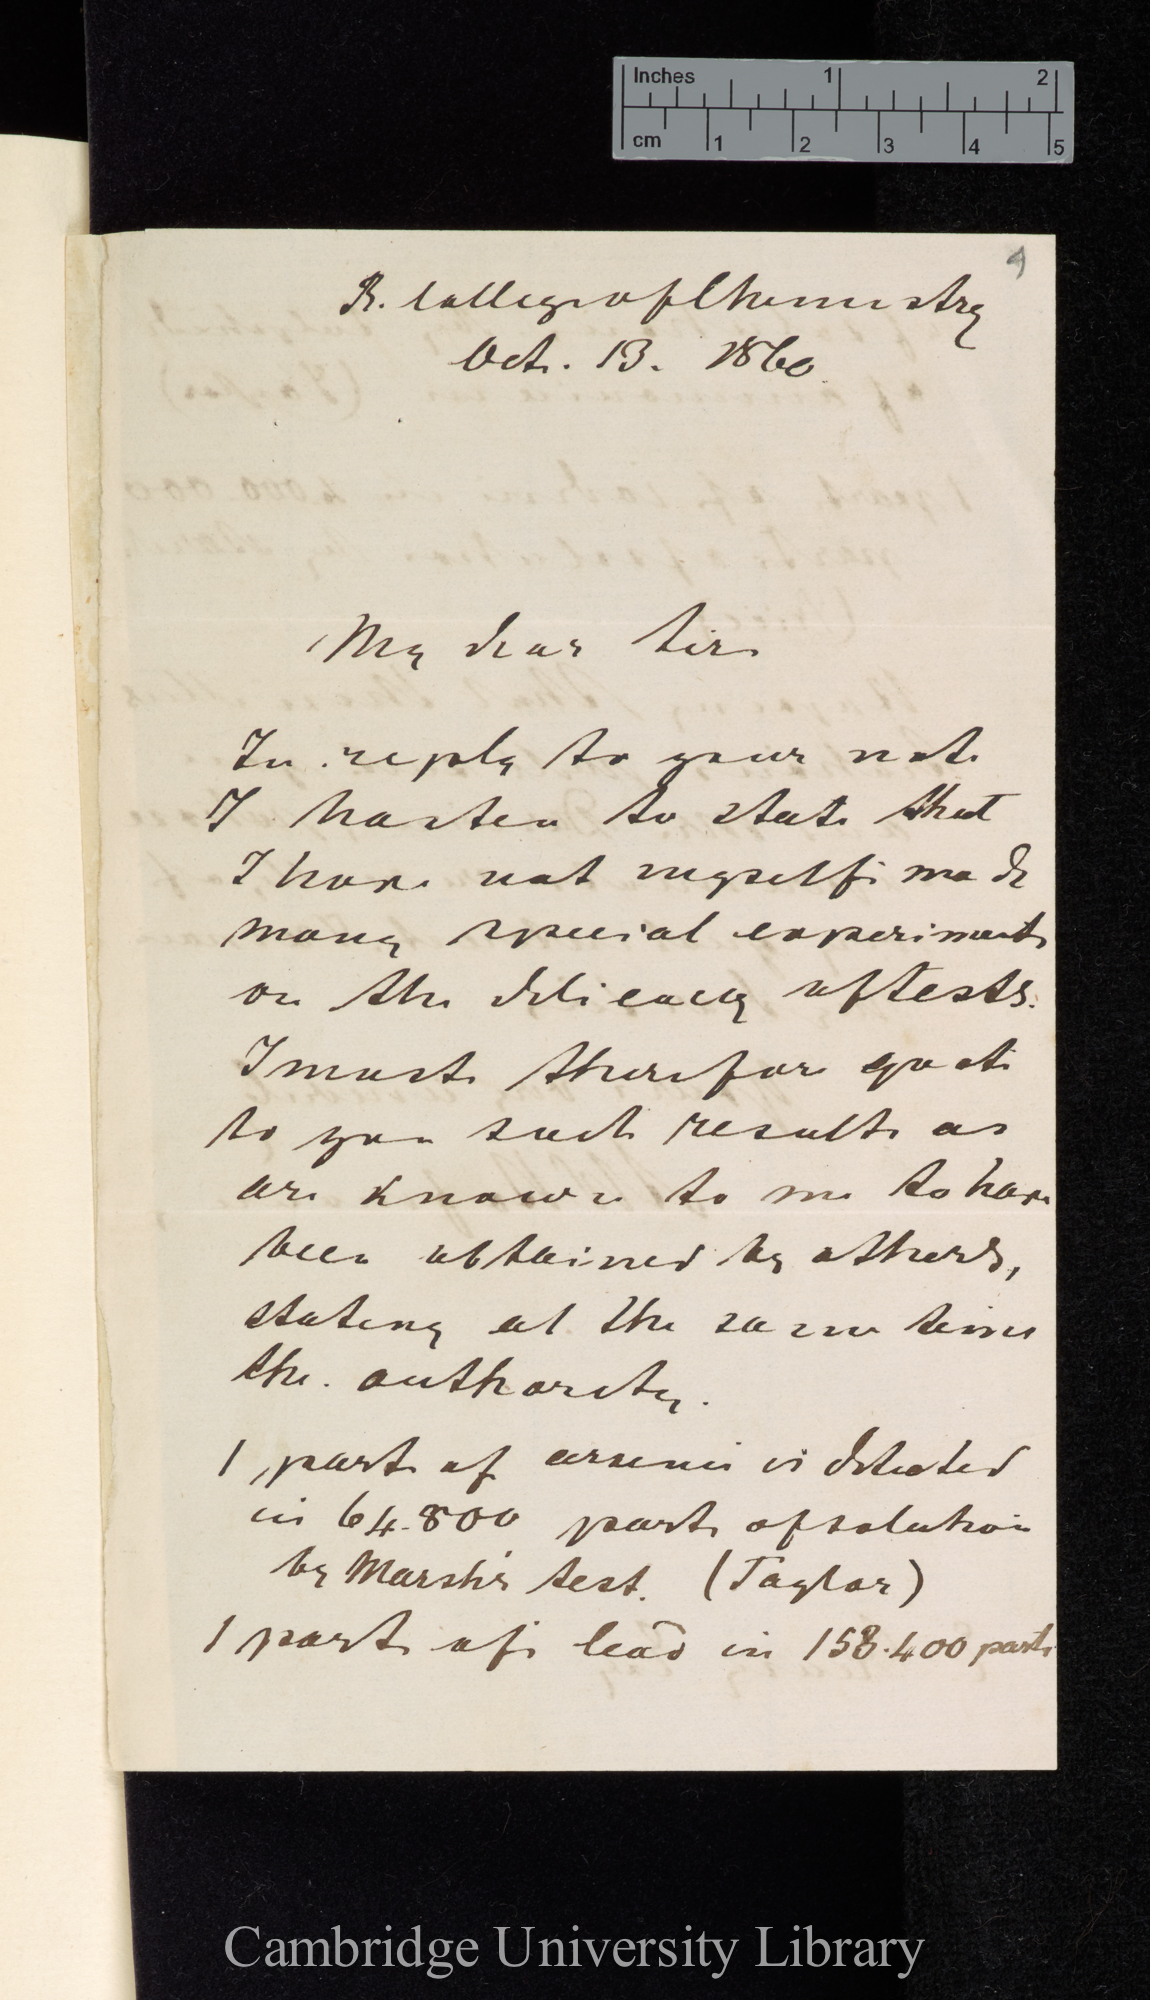 Inches 1 2
cm 1 2 3 4 5
9
R. College of Chemistry
Oct. 13. 1860
My dear Sir
In reply to your note
I hasten to state that
I have not myself made
many special experiments
on the delicacy of tests.
I must therefore quote
to you such results as
are known to me to have
been obtained by others,
stating at the same time
the authority.
1 part of arsenic is detected
in 64.800 parts of solution
by Marsh's test. (Taylor)
1 part of lead in 158.400 parts
Cambridge University Library